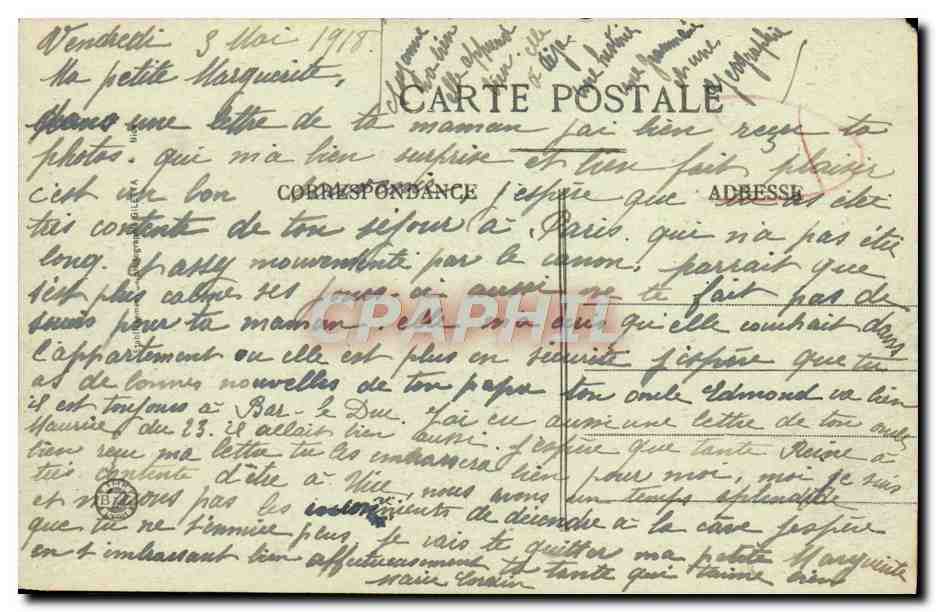 Vendredi 3 Mai 1918.
Ma petite Marguerite,
Suzanne va bien
elle apprend
bien elle
a déja
une histoire
une grammaire
et une
géographie
CARTE POSTALE
Dans une lettre de ta maman j'ai bien reçu ta
photos. qui m'a bien surprise et bien fait plaisir
CORRESPONDANCE
ADRESSE
c'est un bon j'espère que tu as été
très contente de ton séjour à Paris. qui n'a pas été
long. et assez mouvementé par le canon, parrait que
s'est plus calme ses jours ci aussi ne te fait pas de
soucis pour ta maman. elle m'a dit qu'elle couchait dans
l'appartement ou elle est plus en sécurité j'espère que tu
as de bonnes nouvelles de ton papa ton oncle Edmond va bien
il est toujours à Bar-le Duc. J'ai eu aussi une lettre de ton oncle
Maurice du 23. il allait bien aussi. j'espère que tante Reine à
bien reçu ma lettre tu les embrassera bien pour moi, moi je suis
très contente d'être à Nice, nous avons un temps splendide
et n'avons pas les de décendre à la cave j'espère
que tu ne t'ennuie pas, je vais te quitter ma petite Marguerite
en t'embrassant bien affectueusement ta tante qui t'aime bien
Marie
GILETTA
Nice
CPAPHIL